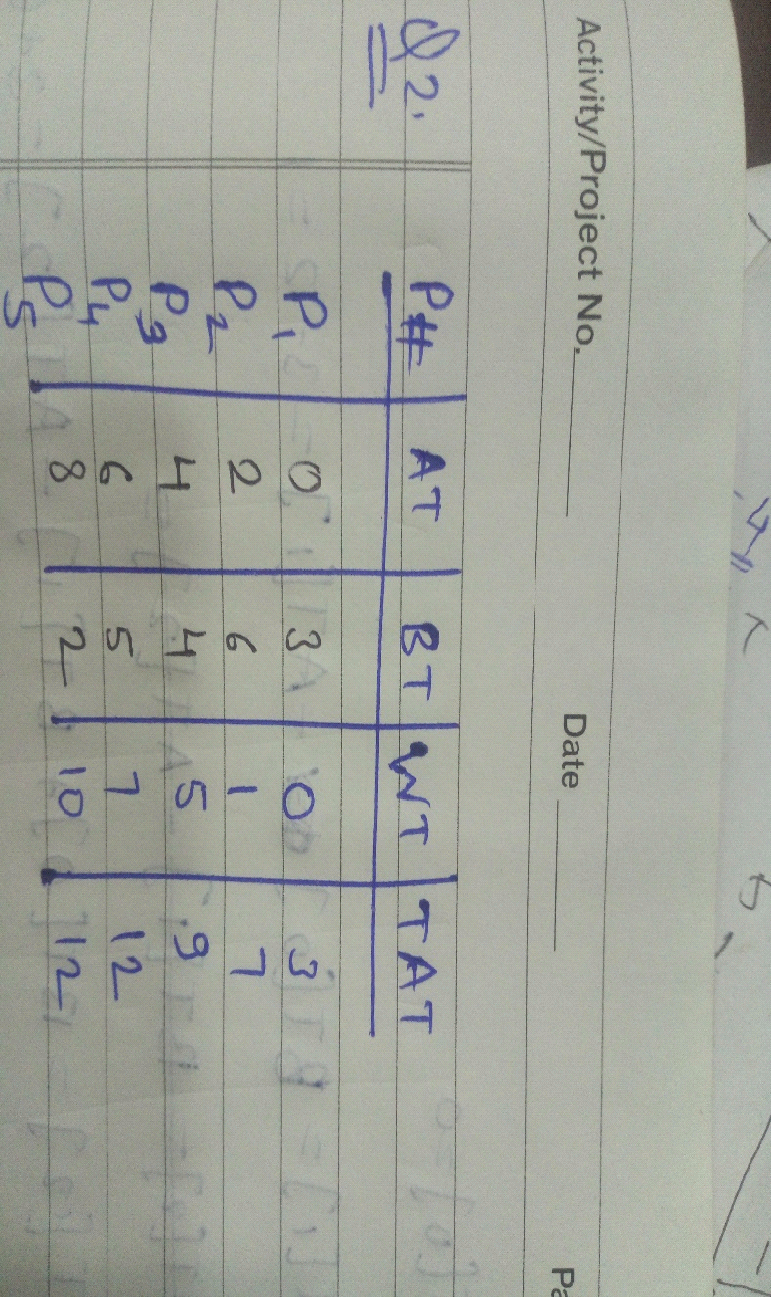 Activity/Project No. Date Pa
Q2.
P# AT BT WT TAT
P1 0 3 0 3
P2 2 6 1 7
P3 4 4 5 9
P4 6 5 7 12
P5 8 2 10 12